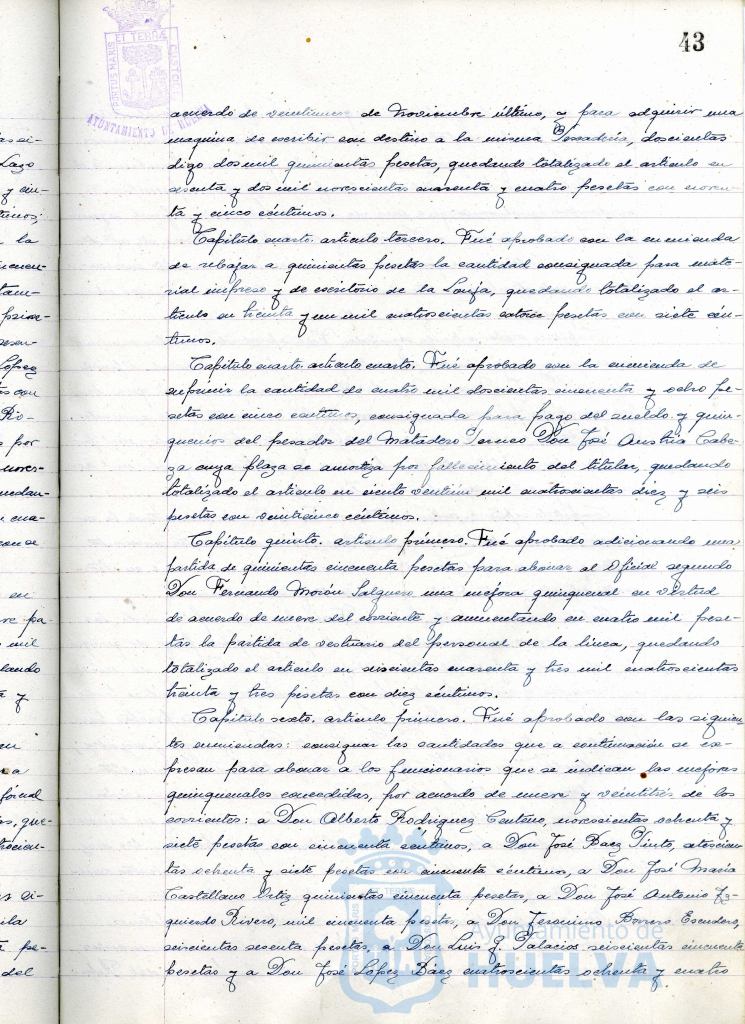 43
PORTUS MARIS ET TERRAE CUSTODIA
AYUNTAMIENTO DE HUELVA
acuerdo de veintinueve de Noviembre último, y para adquirir una
maquina de escribir con destino a la misma Tesoreria, doscientas
digo dos mil quinientas pesetas, quedando totalizado el articulo en
sesenta y dos mil novecientas cuarenta y cuatro pesetas con noven-
ta y cinco céntimos.
Capitulo cuarto. articulo tercero. Fué aprobado con la enmienda
de rebajar a quinientas pesetas la cantidad consignada para mate-
rial impreso y de escritorio de la Lonja, quedando totalizado el ar-
ticulo en treinta y un mil cuatrocientas catorce pesetas con siete cén-
timos.
Capitulo cuarto. articulo cuarto. Fué aprobado con la enmienda de
suprimir la cantidad de cuatro mil doscientas cincuenta y ocho pe-
setas con cinco centimos, consignada para pago del sueldo y quin-
quenios del pesador del Matadero Don José Austria Cabe-
za cuya plaza se amortiza por fallecimiento del titular, quedando
totalizado el articulo en ciento mil cuatrocientas diez y seis
pesetas con veinticinco centimos.
Capitulo quinto. articulo primero. Fué aprobado adicionando una
partida de quinientas cincuenta pesetas para abonar al Oficial segundo
Don Fernando Morón Salguero una mejora quinquenal en virtud
de acuerdo de nueve del corriente y aumentando en cuatro mil pese-
tas la partida de vestuario del personal de la linea, quedando
totalizado el articulo en seiscientas cuarenta y tres mil cuatrocientas
treinta y tres pesetas con diez céntimos.
Capitulo sexto. articulo primero. Fué aprobado con las siguien-
tes enmiendas: consignar las cantidades que a continuación se ex-
presan para abonar a los funcionarios que se indican las mejoras
quinquenales concedidas, por acuerdo de nueve y veintitrés de los
corrientes: a Don Alberto Rodriguez Centeno, novecientas ochenta y
siete pesetas con cincuenta centimos, a Don José Baez Pinto, cuatrocien-
tas ochenta y siete pesetas con cincuenta céntimos, a Don José Maria
Castellano Ortiz quinientas cincuenta pesetas, a Don José Antonio Iz-
quierdo Rivero, mil cincuenta pesetas, a Don Jeronimo Borrero Escudero,
seiscientas sesenta pesetas, a Don Luis G. Palacios seiscientas cincuenta
pesetas y a Don José López Diaz cuatrocientas ochenta y cuatro
Ayuntamiento de
HUELVA